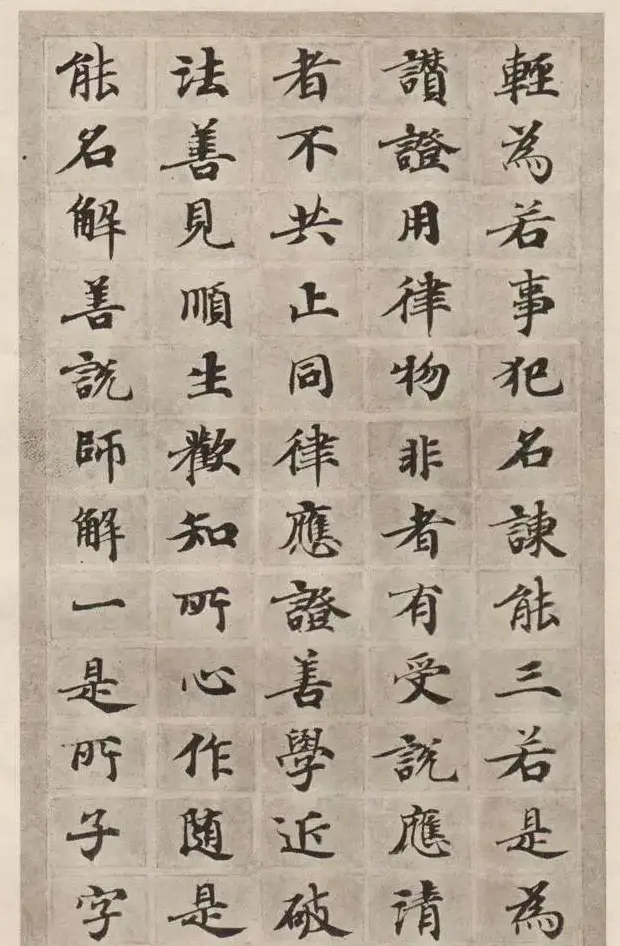 輕為若事犯名諫能三若是為
讃證用律物非者有受說應請
者不共止同律應證善學近破
法善見順生歡知所心作随是
能名解善說師解一是所子字